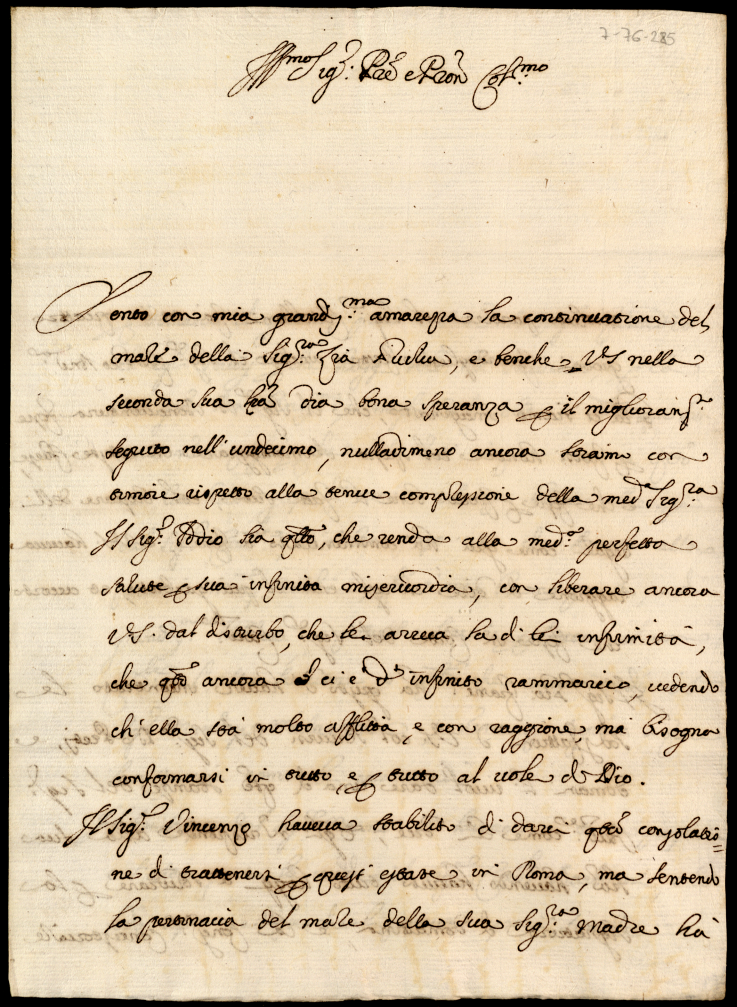 7-76-285
Ill.mo Sig.r Pr̃e e Pron̄ Col.mo
Sento con mia grandiss.ma amarezza la continuatione del
male della Sig.ra Zia, e benche VS nella
seconda sua l̃ra dia bona speranza p il miglioram.to
seguito nell'undecimo, nulladimeno ancora io con
timore rispetto alla tenue complessione della med.a Sig.ra
Il Sig.r Iddio sia q̃llo, che renda alla med.a perfetta
salute p sua infinita misericordia, con liberare ancora
VS. dal disturbo, che le arreca la di lei infirmità,
che q̃to ancora ci è d'infinito rammarico, vedendo
ch'ella stà molto afflitta, e con raggione, ma bisogna
conformarsi in tutto, e p tutto al volere di Dio.
Il Sig.r Vincenzo haveva stabilito di darci q̃ta consolatio=
ne di trattenersi p quest'estate in Roma, ma sentendo
la pertinacia del male della sua Sig.ra Madre hà